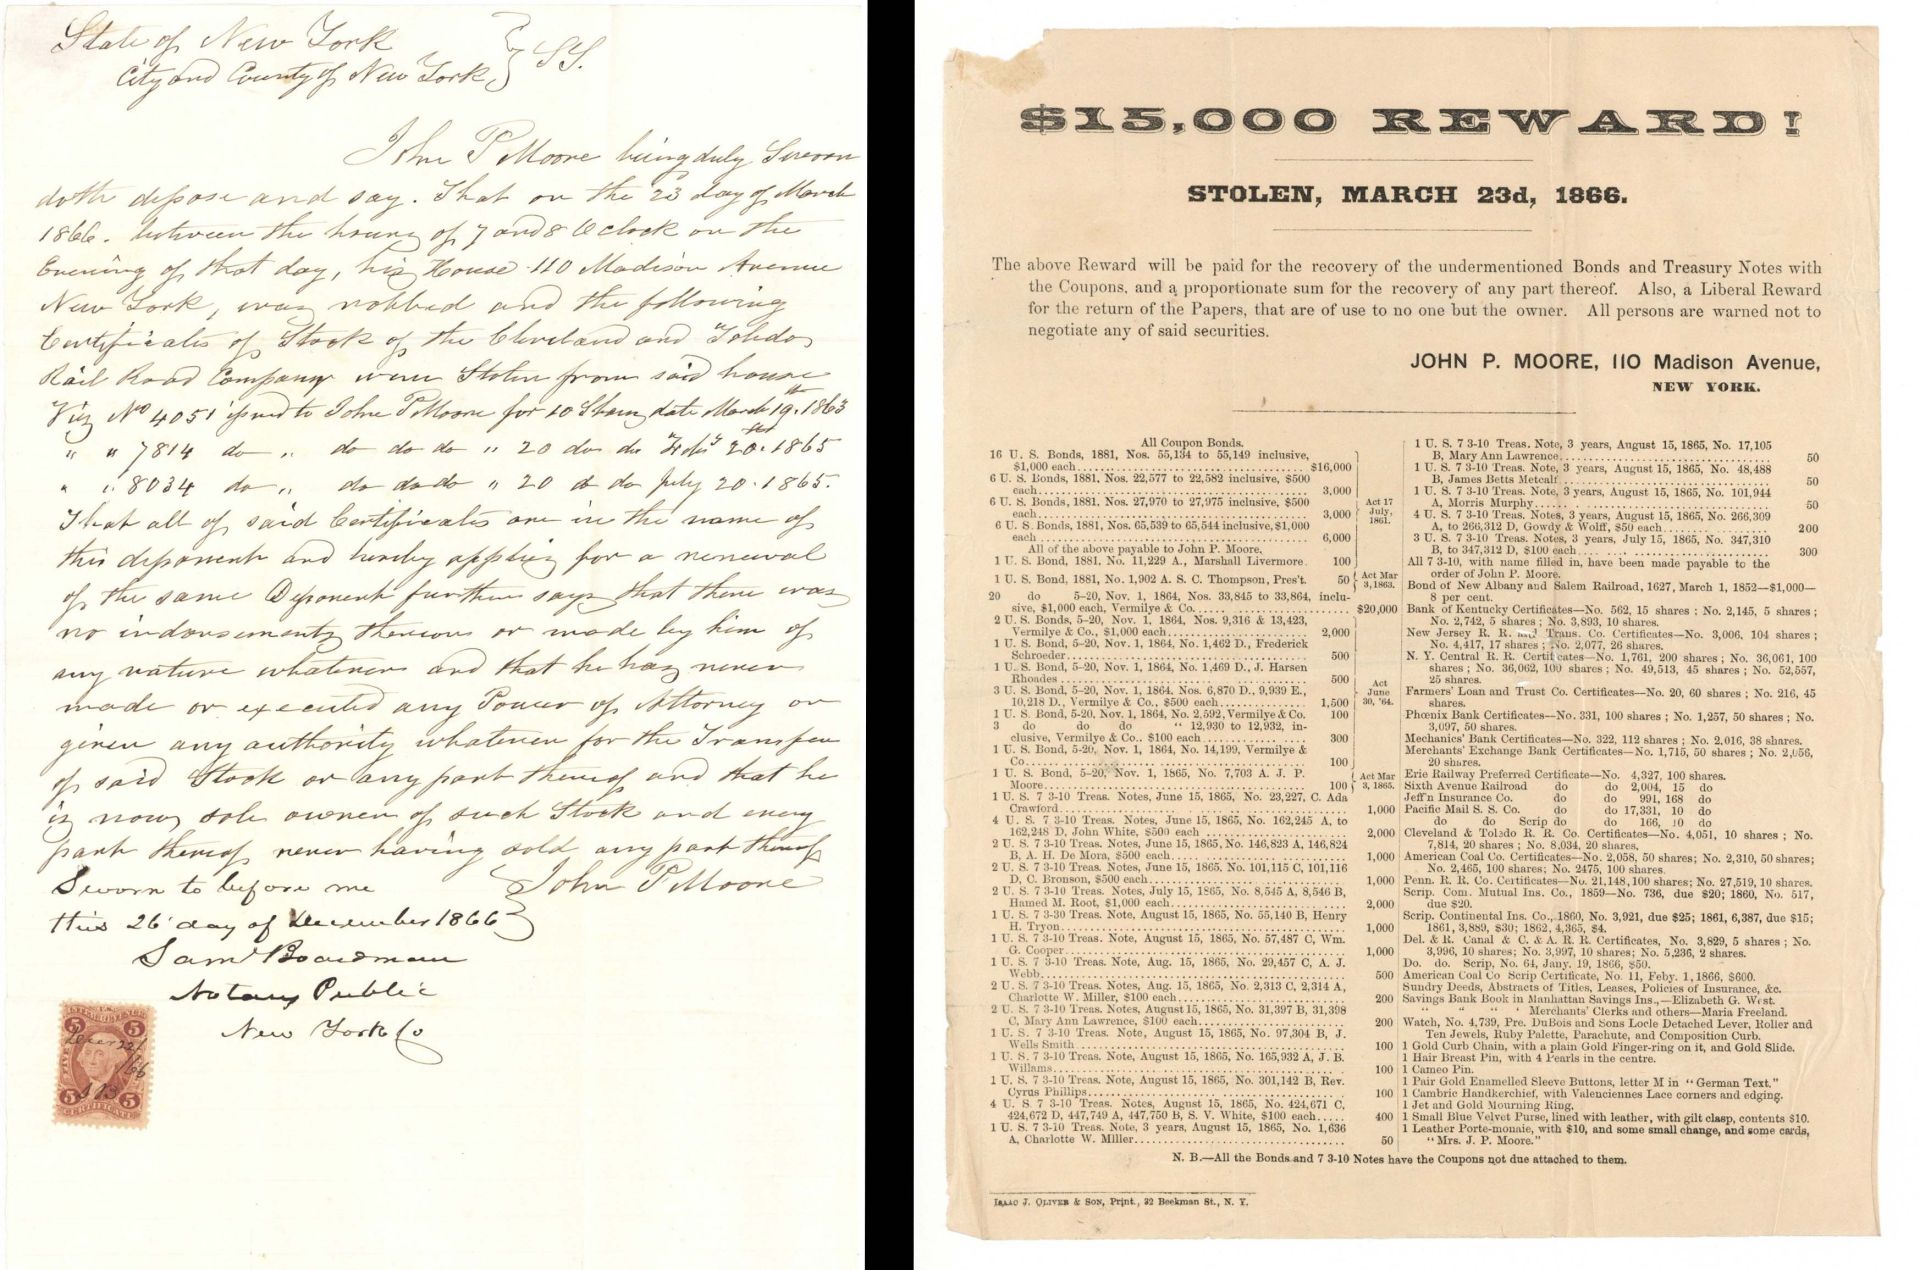 State of New York
City and County of New York, } SS.
John P Moore being duly Sworn
doth depose and say. That on the 23 day of March
1866. between the hours of 7 and 8 O Clock on the
Evening of that day, his House 110 Madison Avenue
New York, was robbed and the following
Certificates of Stock of the Cleveland and Toledo
Rail Road Company were Stolen from said house
Viz No 4051 issued to John P Moore for 10 Shares date March 19th. 1863
" " 7814 do " do do do " 20 do do Feby 20th. 1865
" " 8034 do " do do do " 20 do do July 20. 1865.
That all of said Certificates are in the name of
this deponent and hereby applies for a renewal
of the same Deponent further says that there was
no indorsements thereon or made by him of
any nature whatever and that he has never
made or executed any Power of Attorney or
given any authority whatever for the Transfer
of said Stock or any part thereof and that he
is now sole owner of such Stock and every
part thereof never having sold any part thereof
Sworn to before me } John P Moore
this 26 day of December 1866
Saml Boardman
Notary Public
New York Co
5 5
Decer 22/
/66
S B
5 5
CERTIFICATE
$15,000 REWARD!
STOLEN, MARCH 23d, 1866.
The above Reward will be paid for the recovery of the undermentioned Bonds and Treasury Notes with
the Coupons, and a proportionate sum for the recovery of any part thereof. Also, a Liberal Reward
for the return of the Papers, that are of use to no one but the owner. All persons are warned not to
negotiate any of said securities.
JOHN P. MOORE, 110 Madison Avenue,
NEW YORK.
All Coupon Bonds.
16 U. S. Bonds, 1881, Nos. 55,134 to 55,149 inclusive,
$1,000 each.......... $16,000
6 U. S. Bonds, 1881, Nos. 22,577 to 22,582 inclusive, $500
each.......... 3,000
6 U. S. Bonds, 1881, Nos. 27,970 to 27,975 inclusive, $500
each.......... 3,000
6 U. S. Bonds, 1881, Nos. 65,539 to 65,544 inclusive, $1,000
each.......... 6,000
All of the above payable to John P. Moore.
1 U. S. Bond, 1881, No. 11,229 A., Marshall Livermore. 100
Act 17
July,
1861.
1 U. S. Bond, 1881, No. 1,902 A. S. C. Thompson, Pres't. 50
Act Mar
3, 1863.
20 do 5-20, Nov. 1, 1864, Nos. 33,845 to 33,864, inclu-
sive, $1,000 each, Vermilye & Co.......... $20,000
2 U. S. Bonds, 5-20, Nov. 1, 1864, Nos. 9,316 & 13,423,
Vermilye & Co., $1,000 each.......... 2,000
1 U. S. Bond, 5-20, Nov. 1, 1864, No. 1,462 D., Frederick
Schroeder.......... 500
1 U. S. Bond, 5-20, Nov. 1, 1864, No. 1,469 D., J. Harsen
Rhoades.......... 500
3 U. S. Bond, 5-20, Nov. 1, 1864, Nos. 6,870 D., 9,939 E.,
10,218 D., Vermilye & Co., $500 each.......... 1,500
1 U. S. Bond, 5-20, Nov. 1, 1864, No. 2,592, Vermilye & Co. 100
3 do do do " 12,930 to 12,932, in-
clusive, Vermilye & Co.. $100 each.......... 300
1 U. S. Bond, 5-20, Nov. 1, 1864, No. 14,199, Vermilye &
Co.......... 100
Act
June
30, '64.
1 U. S. Bond, 5-20, Nov. 1, 1865, No. 7,703 A. J. P.
Moore.......... 100
Act Mar
3, 1865.
1 U. S. 7 3-10 Treas. Notes, June 15, 1865, No. 23,227, C. Ada
Crawford.......... 1,000
4 U. S. 7 3-10 Treas. Notes, June 15, 1865, No. 162,245 A, to
162,248 D, John White, $500 each.......... 2,000
2 U. S. 7 3-10 Treas. Notes, June 15, 1865, No. 146,823 A, 146,824
B, A. H. De Mora, $500 each.......... 1,000
2 U. S. 7 3-10 Treas. Notes, June 15, 1865, No. 101,115 C, 101,116
D, C. Bronson, $500 each.......... 1,000
2 U. S. 7 3-10 Treas. Notes, July 15, 1865, No. 8,545 A, 8,546 B,
Hamed M. Root, $1,000 each.......... 2,000
1 U. S. 7 3-30 Treas. Note, August 15, 1865, No. 55,140 B, Henry
H. Tryon.......... 1,000
1 U. S. 7 3-10 Treas. Note, August 15, 1865, No. 57,487 C, Wm.
G. Cooper.......... 1,000
1 U. S. 7 3-10 Treas. Note, Aug. 15, 1865, No. 29,457 C, A. J.
Webb.......... 500
2 U. S. 7 3-10 Treas. Notes, Aug. 15, 1865, No. 2,313 C, 2,314 A,
Charlotte W. Miller, $100 each.......... 200
2 U. S. 7 3-10 Treas. Notes, August 15, 1865, No. 31,397 B, 31,398
C, Mary Ann Lawrence, $100 each.......... 200
1 U. S. 7 3-10 Treas. Note, August 15, 1865, No. 97,304 B, J.
Wells Smith.......... 100
1 U. S. 7 3-10 Treas. Note, August 15, 1865, No. 165,932 A, J. B.
Willams.......... 100
1 U. S. 7 3-10 Treas. Note, August 15, 1865, No. 301,142 B, Rev.
Cyrus Phillips.......... 100
4 U. S. 7 3-10 Treas. Notes, August 15, 1865, No. 424,671 C,
424,672 D, 447,749 A, 447,750 B, S. V. White, $100 each...... 400
1 U. S. 7 3-10 Treas. Note, 3 years, August 15, 1865, No. 1,636
A, Charlotte W. Miller.......... 50
1 U. S. 7 3-10 Treas. Note, 3 years, August 15, 1865, No. 17,105
B, Mary Ann Lawrence.......... 50
1 U. S. 7 3-10 Treas. Note, 3 years, August 15, 1865, No. 48,488
B, James Betts Metcalf.......... 50
1 U. S. 7 3-10 Treas. Note, 3 years, August 15, 1865, No. 101,944
A, Morris Murphy.......... 50
4 U. S. 7 3-10 Treas. Notes, 3 years, August 15, 1865, No. 266,309
A, to 266,312 D, Gowdy & Wolff, $50 each.......... 200
3 U. S. 7 3-10 Treas. Notes, 3 years, July 15, 1865, No. 347,310
B, to 347,312 D, $100 each.......... 300
All 7 3-10, with name filled in, have been made payable to the
order of John P. Moore.
Bond of New Albany and Salem Railroad, 1627, March 1, 1852—$1,000—
8 per cent.
Bank of Kentucky Certificates—No. 562, 15 shares ; No. 2,145, 5 shares ;
No. 2,742, 5 shares ; No. 3,893, 10 shares.
New Jersey R. R. and Trans. Co. Certificates—No. 3,006, 104 shares ;
No. 4,417, 17 shares ; No. 2,077, 26 shares.
N. Y. Central R. R. Certificates—No. 1,761, 200 shares ; No. 36,061, 100
shares ; No. 36,062, 100 shares ; No. 49,513, 45 shares ; No. 52,557,
25 shares.
Farmers' Loan and Trust Co. Certificates—No. 20, 60 shares ; No. 216, 45
shares.
Phœnix Bank Certificates—No. 331, 100 shares ; No. 1,257, 50 shares ; No.
3,097, 50 shares.
Mechanics' Bank Certificates—No. 322, 112 shares ; No. 2,016, 38 shares.
Merchants' Exchange Bank Certificates—No. 1,715, 50 shares ; No. 2,056,
20 shares.
Erie Railway Preferred Certificate—No. 4,327, 100 shares.
Sixth Avenue Railroad do do 2,004, 15 do
Jeff'n Insurance Co. do do 991, 168 do
Pacific Mail S. S. Co. do do 17,331, 10 do
do do Scrip do do 166, 10 do
Cleveland & Toledo R. R. Co. Certificates—No. 4,051, 10 shares ; No.
7,814, 20 shares ; No. 8,034, 20 shares.
American Coal Co. Certificates—No. 2,058, 50 shares; No. 2,310, 50 shares;
No. 2,465, 100 shares; No. 2475, 100 shares.
Penn. R. R. Co. Certificates—No. 21,148, 100 shares; No. 27,519, 10 shares.
Scrip. Com. Mutual Ins. Co., 1859—No. 736, due $20; 1860, No. 517,
due $20.
Scrip. Continental Ins. Co., 1860, No. 3,921, due $25; 1861, 6,387, due $15;
1861, 3,889, $30; 1862, 4,365, $4.
Del. & R. Canal & C. & A. R. R. Certificates, No. 3,829, 5 shares ; No.
3,996, 10 shares; No. 3,997, 10 shares; No. 5,236, 2 shares.
Do. do. Scrip, No. 64, Jany. 19, 1866, $50.
American Coal Co Scrip Certificate, No. 11, Feby. 1, 1866, $600.
Sundry Deeds, Abstracts of Titles, Leases, Policies of Insurance, &c.
Savings Bank Book in Manhattan Savings Ins.,—Elizabeth G. West.
" " " ' Merchants' Clerks and others—Maria Freeland.
Watch, No. 4,739, Pre. DuBois and Sons Locle Detached Lever, Roller and
Ten Jewels, Ruby Palette, Parachute, and Composition Curb.
1 Gold Curb Chain, with a plain Gold Finger-ring on it, and Gold Slide.
1 Hair Breast Pin, with 4 Pearls in the centre.
1 Cameo Pin.
1 Pair Gold Enamelled Sleeve Buttons, letter M in "German Text."
1 Cambric Handkerchief, with Valenciennes Lace corners and edging.
1 Jet and Gold Mourning Ring.
1 Small Blue Velvet Purse, lined with leather, with gilt clasp, contents $10.
1 Leather Porte-monaie, with $10, and some small change, and some cards,
"Mrs. J. P. Moore."
N. B.—All the Bonds and 7 3-10 Notes have the Coupons not due attached to them.
ISAAC J. OLIVER & SON, Print., 32 Beekman St., N. Y.